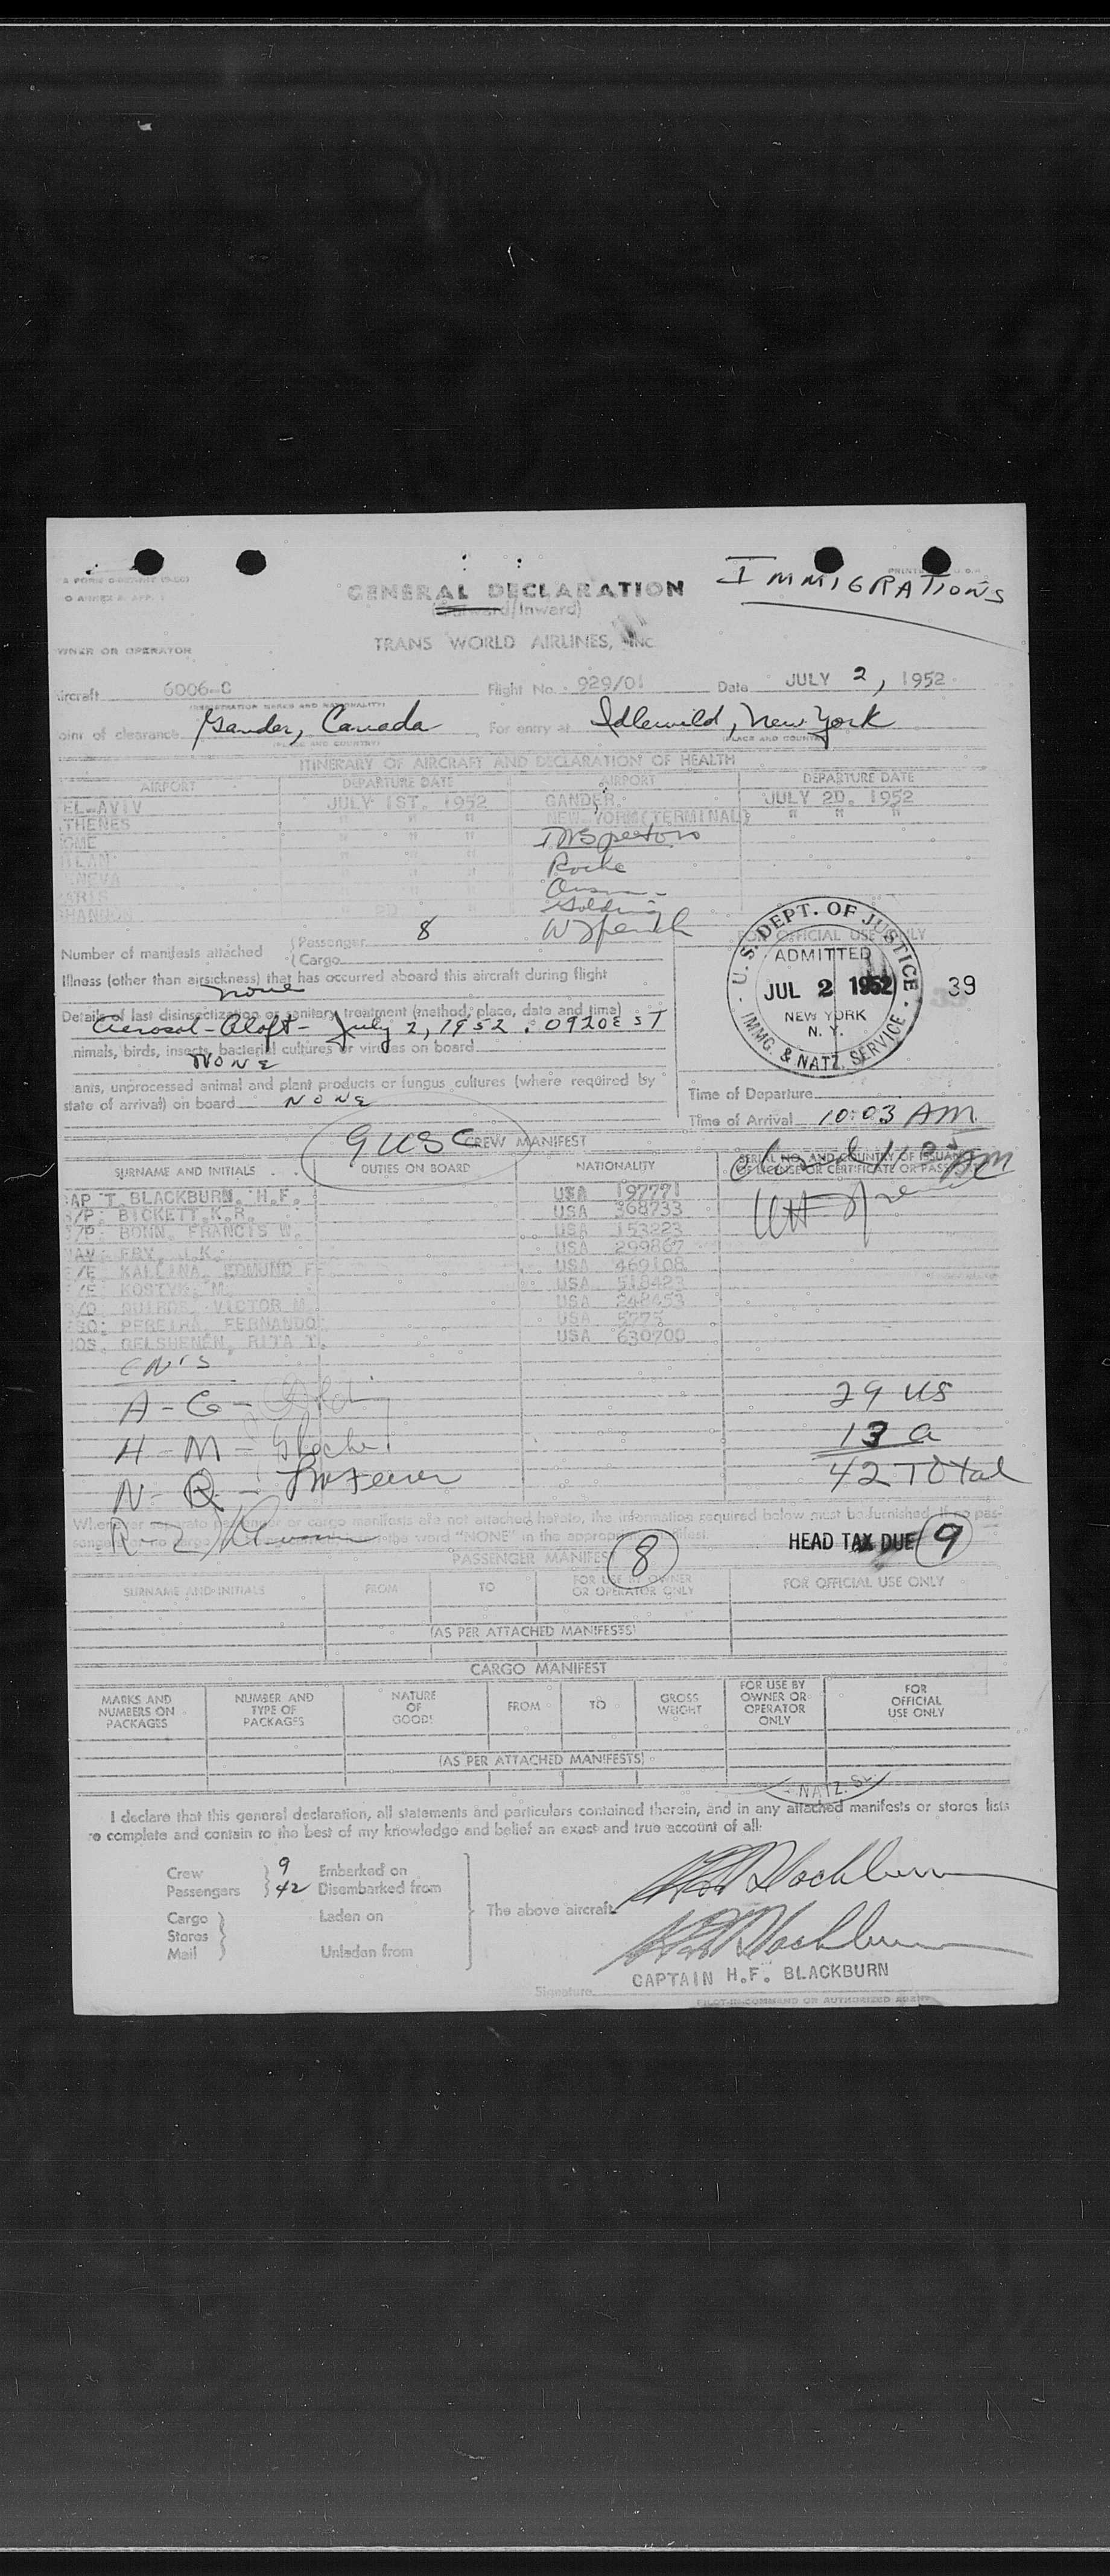 GENERAL DECLARATION
(Outward/Inward)
IMMIGRATIONS
TRANS WORLD AIRLINES, Inc
WNER OR OPERATOR
ircraft 6006-C Flight No. 929/01 Date JULY 2, 1952
(REGISTRATION MARKS AND NATIONALITY)
oint of clearance Gander, Canada For entry at Idlewild, New York
(PLACE AND COUNTRY) (PLACE AND COUNTRY)
ITINERARY OF AIRCRAFT AND DECLARATION OF HEALTH
AIRPORT DEPARTURE DATE AIRPORT DEPARTURE DATE
EL-AVIV JULY 1ST. 1952 GANDER, JULY 2D. 1952
THERES " " " NEW YORK(TERMINAL) " " "
OME " "
ILAN " " Roche
NEVA
ARIS
SHANNON
Number of manifests attached (Passenger 8
(Cargo
FOR OFFICIAL USE ONLY
U.S. DEPT. OF JUSTICE
ADMITTED
JUL 2 1952
NEW YORK
N. Y.
IMMG. & NATZ. SERVICE
39
Illness (other than airsickness) that has occurred aboard this aircraft during flight
none
Details of last disinsectization or sanitary treatment (method, place, date and time)
Aerosol-Aloft- July 2, 1952. 0920EST
nimals, birds, insects, bacterial cultures or viruses on board
NONE
ants, unprocessed animal and plant products or fungus cultures (where required by
state of arrival) on board NONE
Time of Departure
Time of Arrival 10:03 AM
9 USC
CREW MANIFEST
SURNAME AND INITIALS DUTIES ON BOARD NATIONALITY SERIAL NO. AND COUNTRY OF ISSUANCE
OF LICENSE OR CERTIFICATE OR PASSPORT
CAP'T. BLACKBURN. H.F. USA 197771
/P: BICKETT.K.R. USA 368733
/P: BONN. FRANCIS W. USA 153223
NAV: FRY. J.K. USA 299867
/E. KALLINA. EDMUND F USA 469108
/E: KOSTYK. M. USA 518423
/O: QUIROS. VICTOR M. USA 248453
PEREIRA. FERNANDO USA 5775
HOS. RITA T. USA 630700
CN'S
A - G -
29 US
H - M -
13 a
N - Q -
42 Total
R - Z
Whenever separate passenger or cargo manifests are not attached hereto, the information required below must be furnished. If no pas-
the word "NONE" in the appropriate manifest.
HEAD TAX DUE 9
PASSENGER MANIFEST 8
SURNAME AND INITIALS FROM TO FOR USE BY OWNER
OR OPERATOR ONLY FOR OFFICIAL USE ONLY
(AS PER ATTACHED MANIFESTS)
CARGO MANIFEST
MARKS AND
NUMBERS ON
PACKAGES NUMBER AND
TYPE OF
PACKAGES NATURE
OF
GOODS FROM TO GROSS
WEIGHT FOR USE BY
OWNER OR
OPERATOR
ONLY FOR
OFFICIAL
USE ONLY
(AS PER ATTACHED MANIFESTS)
I declare that this general declaration, all statements and particulars contained therein, and in any attached manifests or stores lists
re complete and contain to the best of my knowledge and belief an exact and true account of all:
Crew 9 Embarked on
Passengers 42 Disembarked from
Cargo Laden on The above aircraft
Stores
Mail Unladen from
CAPTAIN H.F. BLACKBURN
Signature
PILOT-IN-COMMAND OR AUTHORIZED AGENT